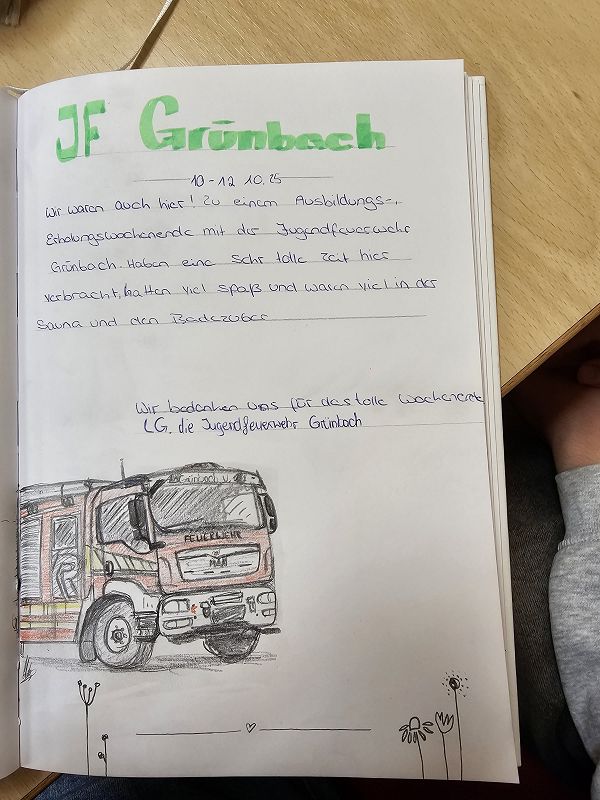 JF Grünbach
10-12 10.25
Wir waren auch hier! Zu einem Ausbildungs-,
Erholungswochenende mit der Jugendfeuerwehr
Grünbach. Haben eine sehr tolle Zeit hier
verbracht, hatten viel spaß und waren viel in der
Sauna und den Badezuber
Wir bedanken uns für das tolle Wochenende
LG. die Jugendfeuerwehr Grünbach
Grünbach
FEUERWEHR
MAN